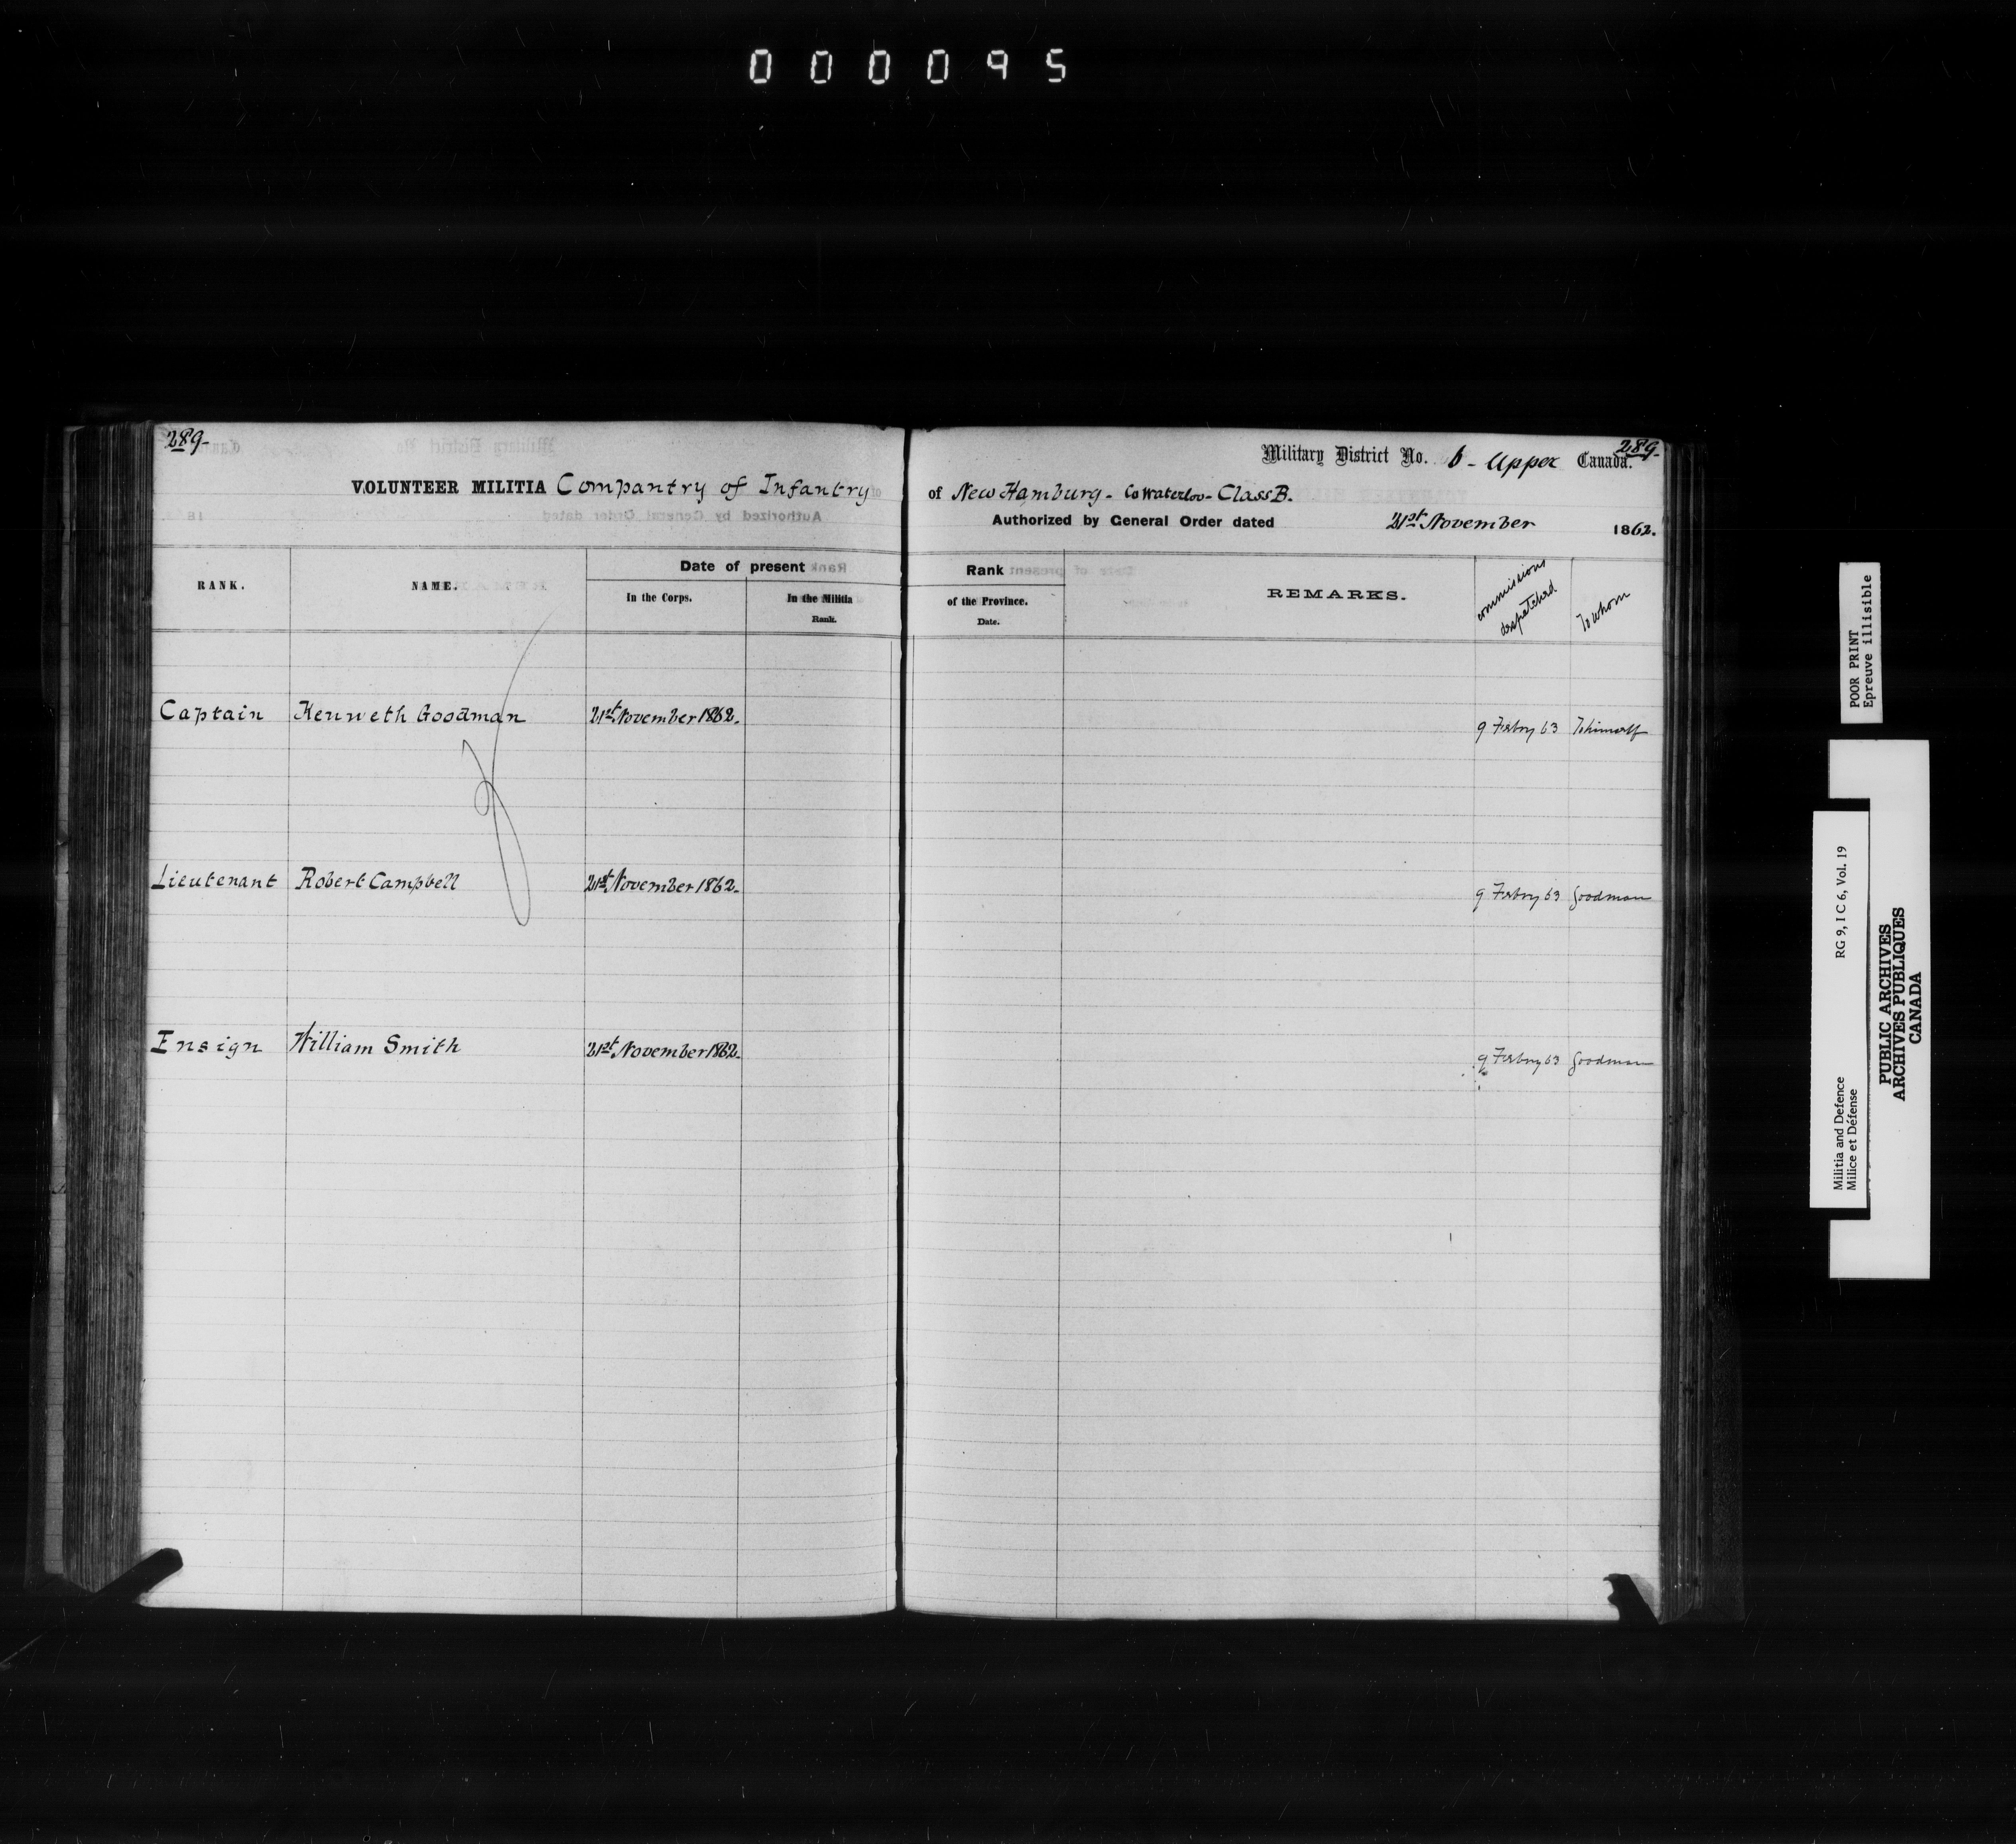 000095
289-
VOLUNTEER MILITIA Compantry of Infantry
RANK.
NAME.
Date of present
In the Corps.
In the Militia
Rank.
Captain Kenneth Goodman 21st November 1862.
Lieutenant Robert Campbell 21st November 1862.
Ensign William Smith 21st November 1862.
289-
Military District No. 6 - Upper Canada.
of New Hamburg - Co Waterloo - Class B.
Authorized by General Order dated 21st November 1862.
Rank
of the Province.
Date.
REMARKS.
commissions
despatched
To whom
9 Febry 63 To himself
9 Febry 63 Goodman
9 Febry 63 Goodman
POOR PRINT
Epreuve illisible
Militia and Defence RG 9, I C 6, Vol. 19
Milice et Défense
PUBLIC ARCHIVES
ARCHIVES PUBLIQUES
CANADA